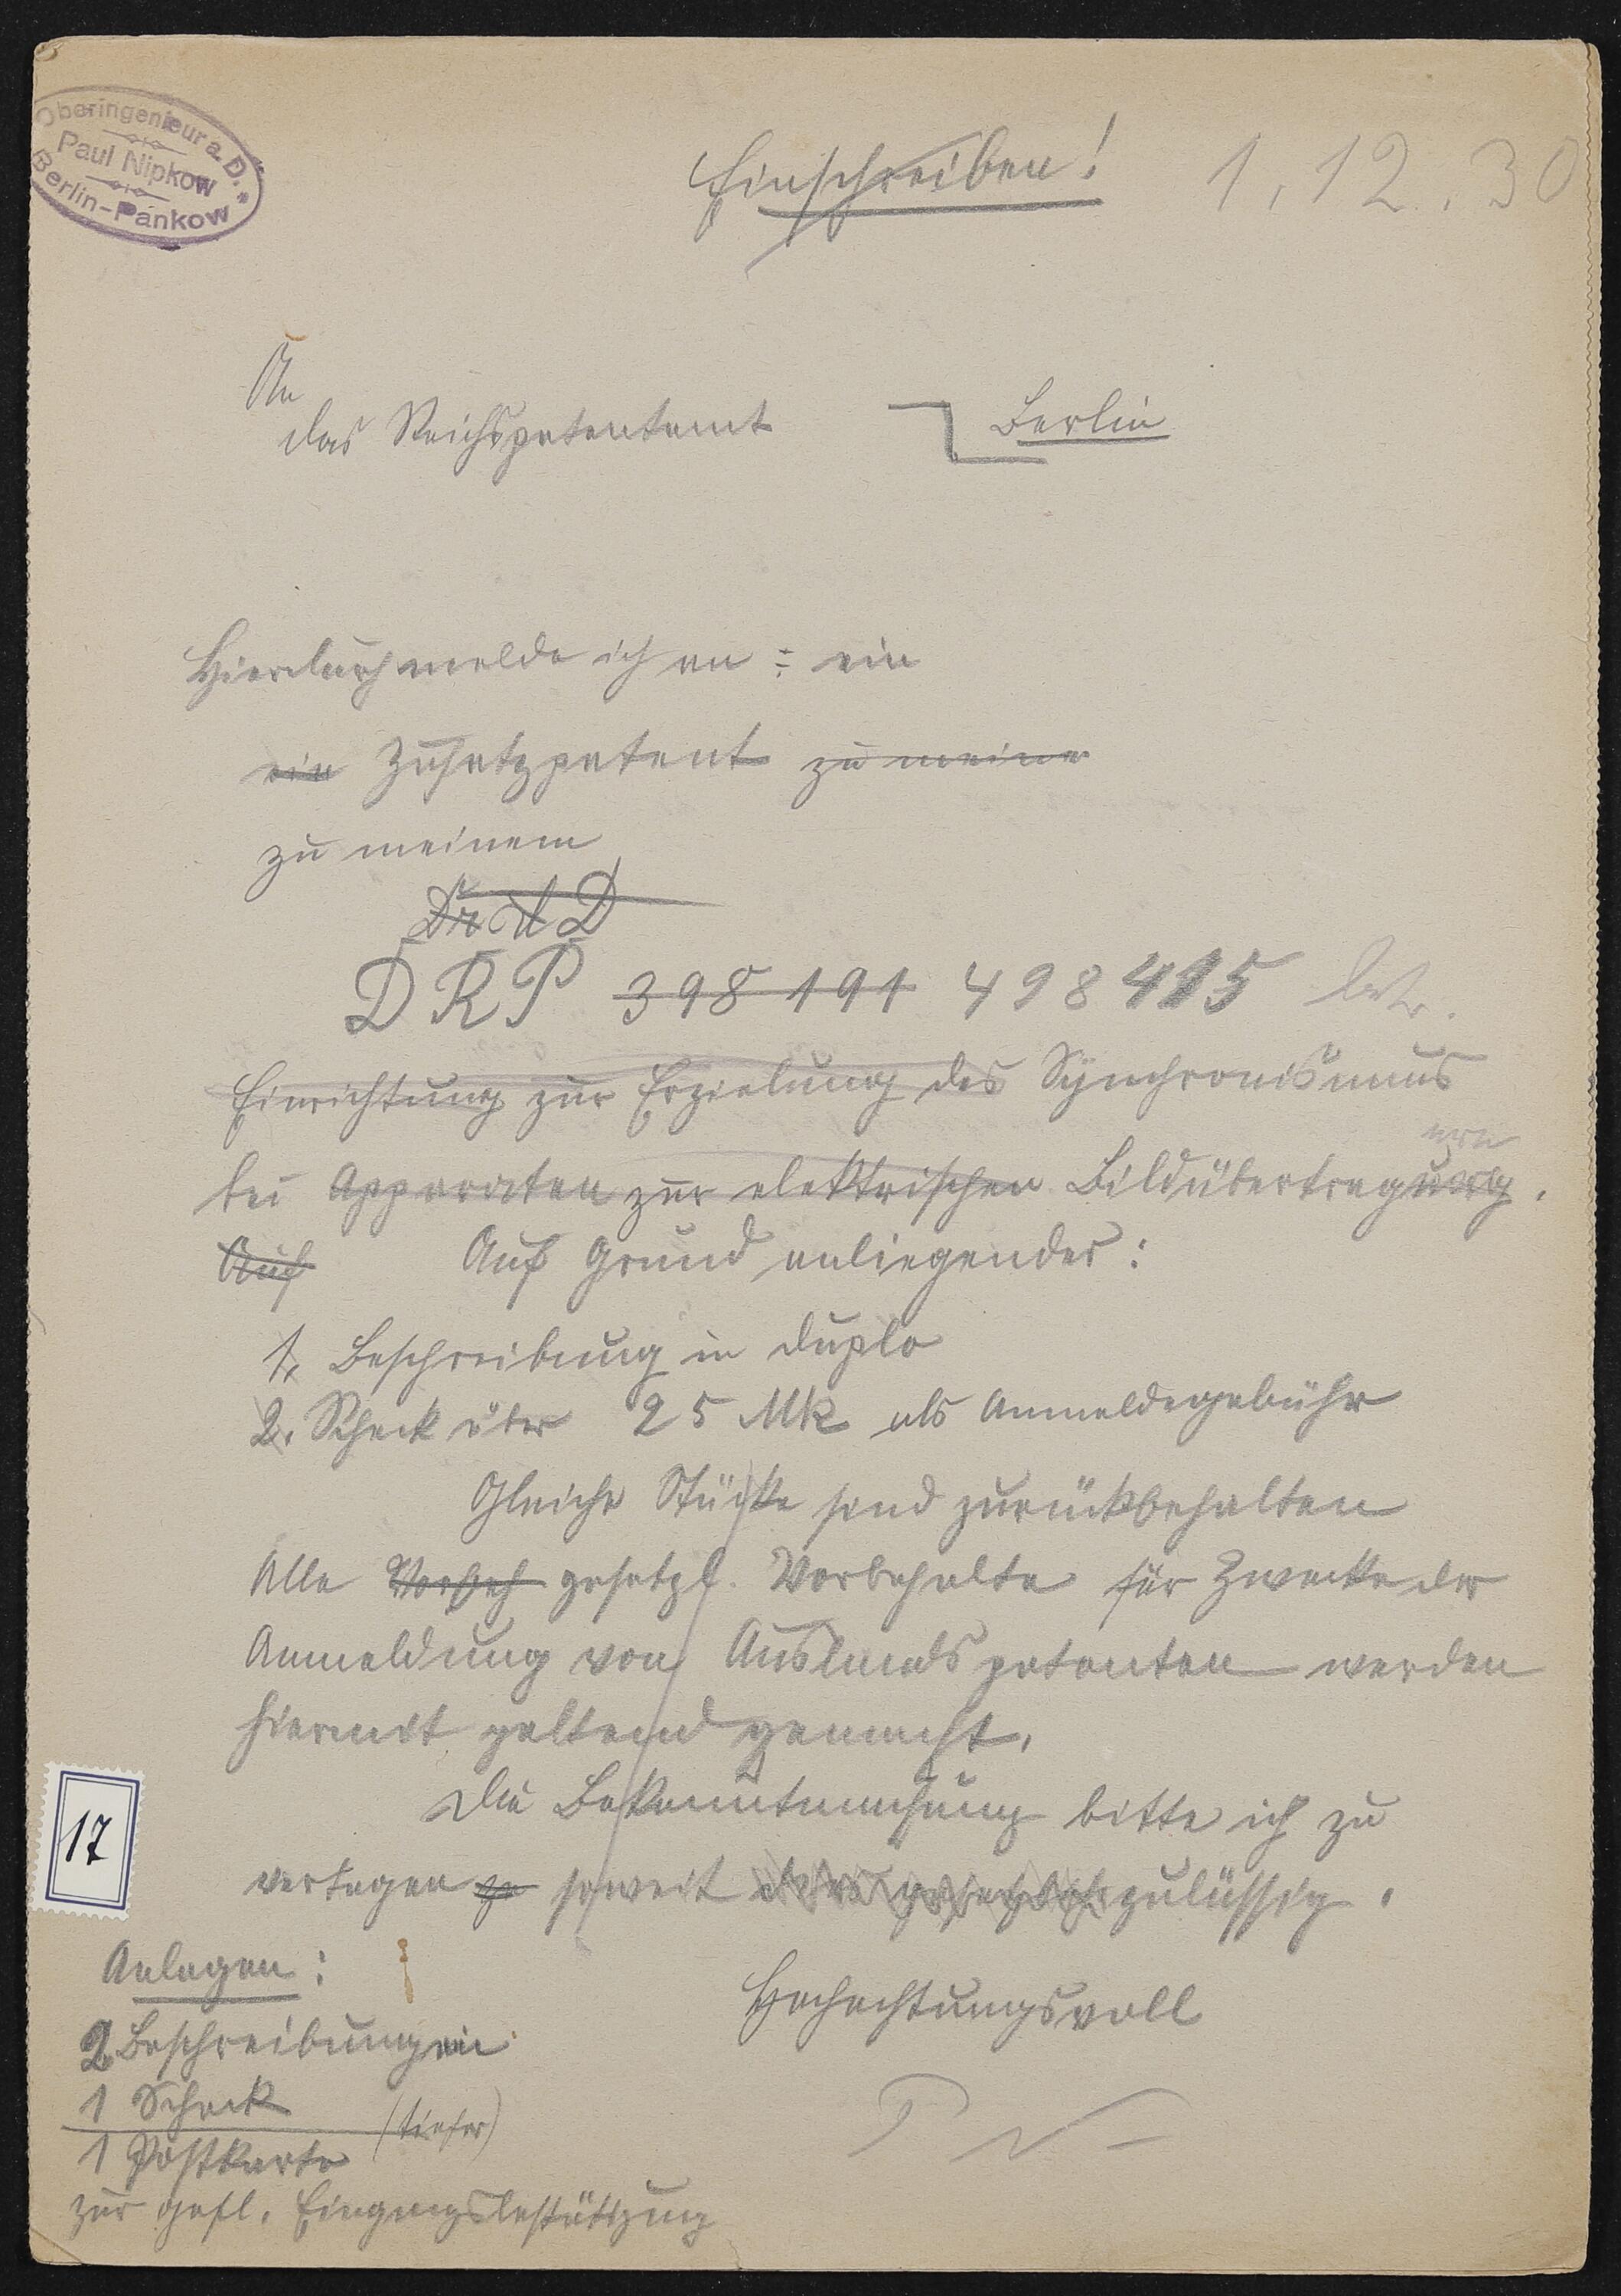 Oberingenieur a. D.
Paul Nipkow
Berlin-Pankow
Einschreiben! 1.12.30
An
das Reichspatentamt Berlin
Hierdurch melde ich an : ein
ein Zusatzpatent zu meine
zu meinem
DRP 398 191 498 415 betr.
Einrichtung zur Erzielung des Synchronismus
bei Apparaten zur elektrischen Bildübertragung.
Auf Auf Grund anliegender:
1, Beschreibung in duplo
2. Scheck über 25 Mk als Anmeldegebühr
Gleiche Stücke sind zurückbehalten
Alle gesetzl. Vorbehalte für Zwecke der
Anmeldung von Auslandspatenten werden
hiermit geltend gemacht.
Die Bekanntmachung bitte ich zu
vertagen soweit zulässig.
17
Anlagen:
Hochachtungsvoll
2 Beschreibungen
1 Scheck
(tiefer)
1 Postkarte
P N
zur gefl. Eingangsbestätigung